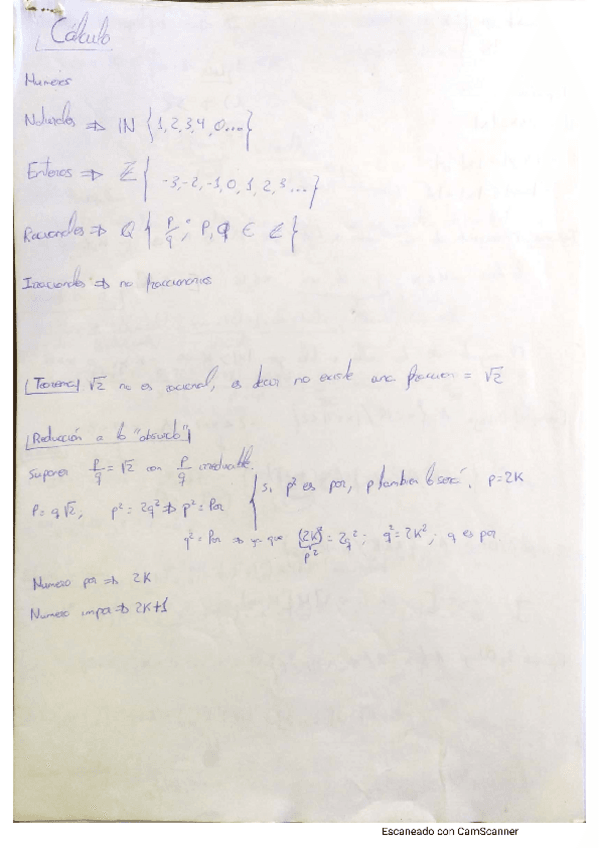 Cálculo
Numeros
Naturales ⇒ ℕ {1,2,3,4,0...}
Enteros ⇒ ℤ { -3,-2,-1,0,1,2,3...}
Racionales ⇒ ℚ { p/q ; p,q ∈ ℤ }
Irracionales ⇒ no fraccionarios
Teorema √2 no es racional, es decir no existe una fraccion = √2
Reducción a lo "absurdo"
Suponer p/q = √2 con p/q irreducible.
Si p² es par, p tambien lo será. p=2K
p = q√2; p² = 2q² ⇒ p² = Par
q² = Par ⇒ ya que (2K)² = 2q²; q² = 2K²; q es par.
p²
Numero par ⇒ 2K
Numero impar ⇒ 2K+1
Escaneado con CamScanner